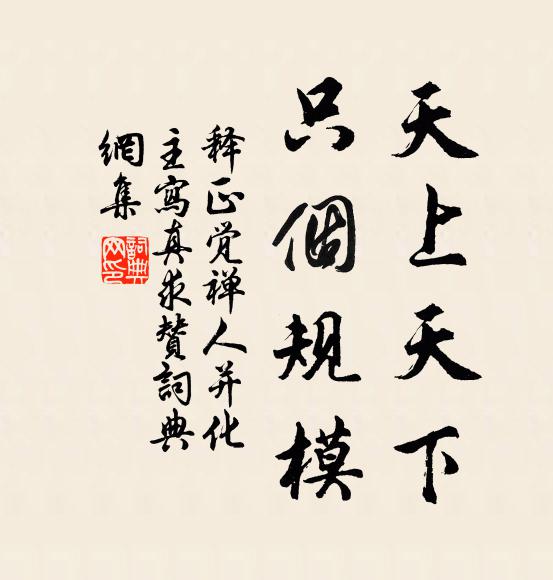 天上天下
只個規模
释正觉禅人并化
主寫真求赞詞典
網集
詞典網印